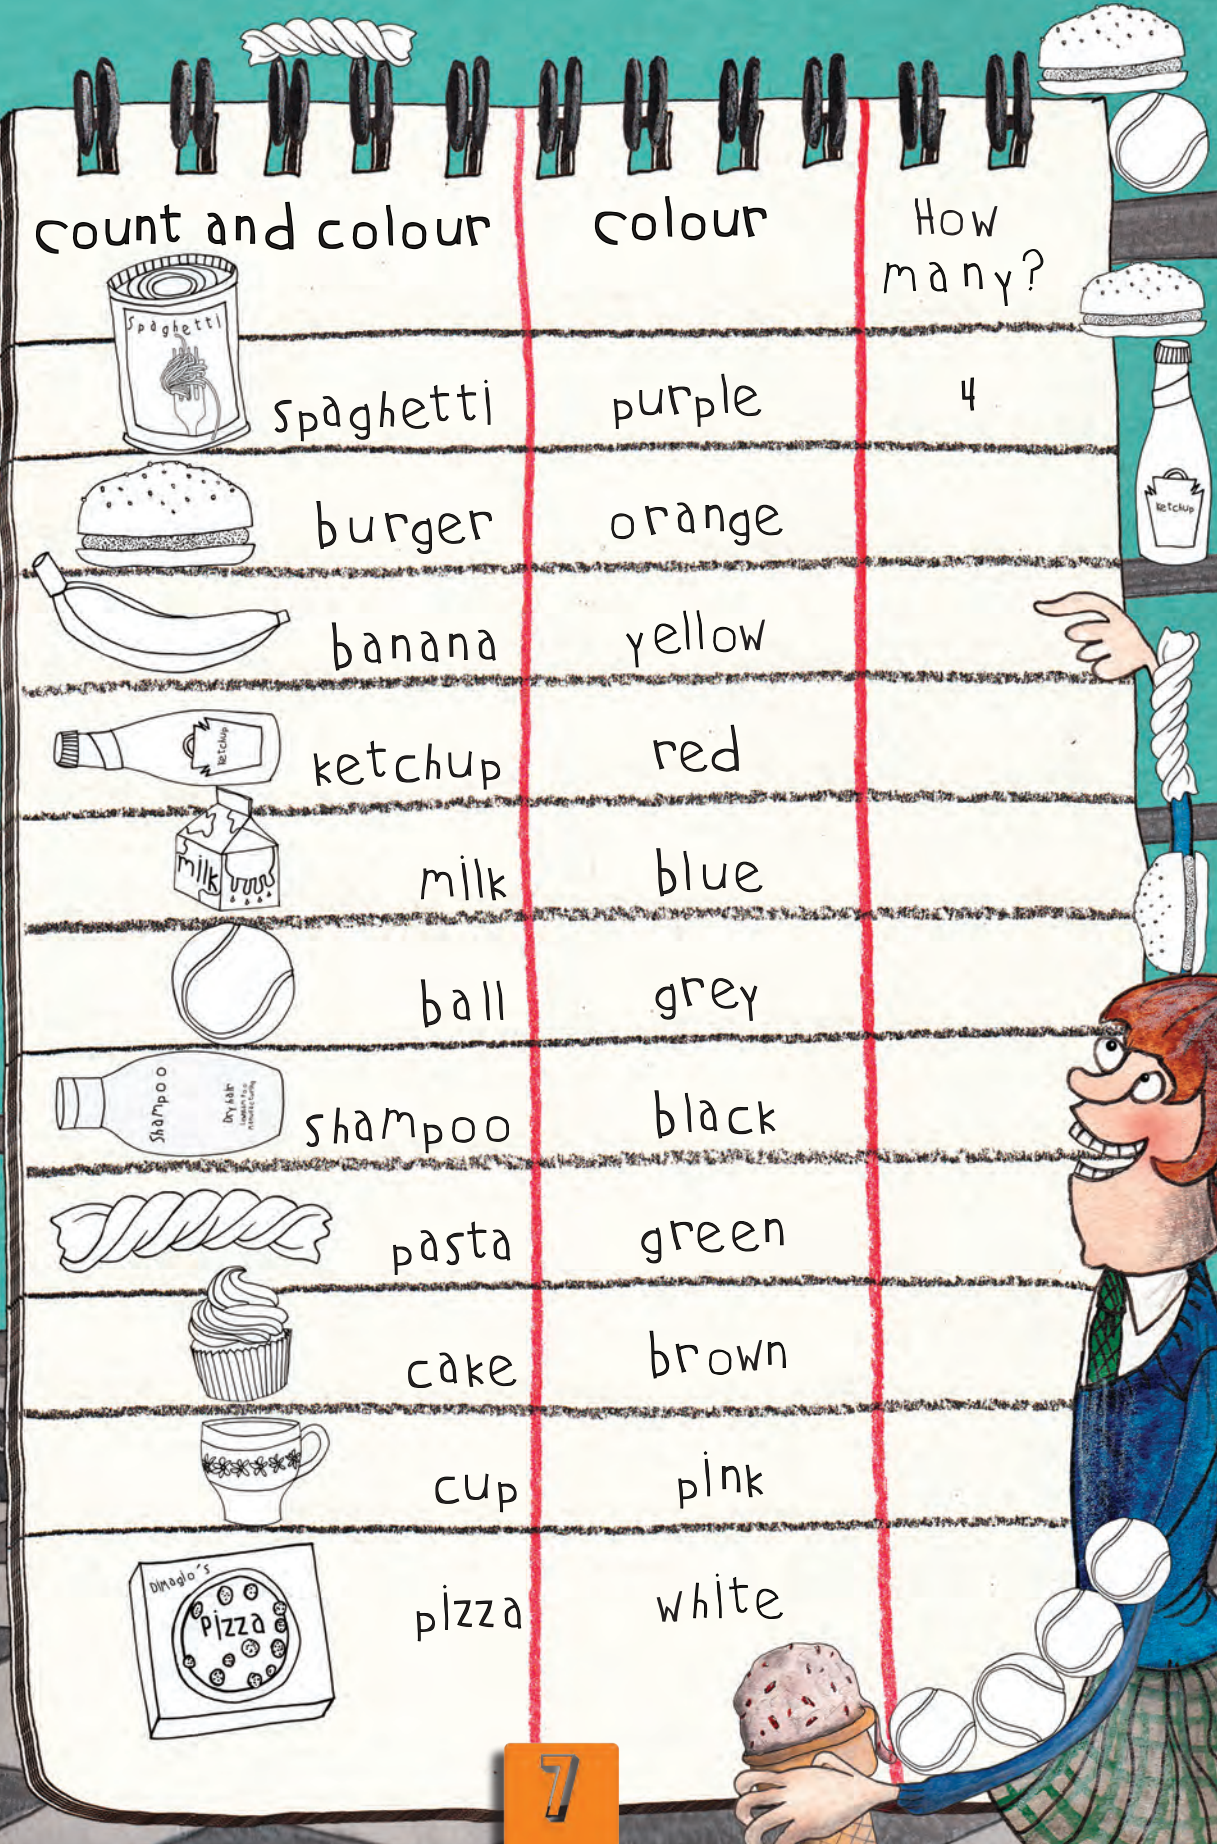 count and colour
colour
How many?
Spaghetti
spaghetti
purple
4
burger
orange
banana
yellow
Ketchup
ketchup
red
milk
milk
blue
ball
grey
Shampoo
Dry hair
shampoo
black
pasta
green
cake
brown
cup
pink
Dimaglo's
Pizza
pizza
white
Ketchup
7